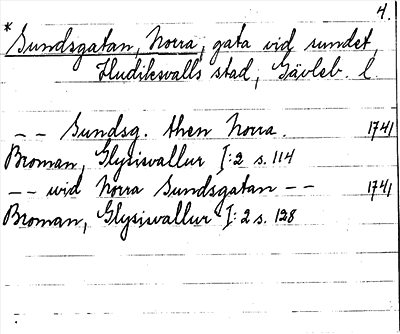 4.
* Sundsgatan, Norra, gata vid sundet,
Hudiksvalls stad, Gävleb. l.
-- Sundsg. then Norra. 1741
Broman, Glysisvallur I:2 s. 114
-- wid Norra Sundsgatan -- 1741
Broman, Glysisvallur I:2 s. 128